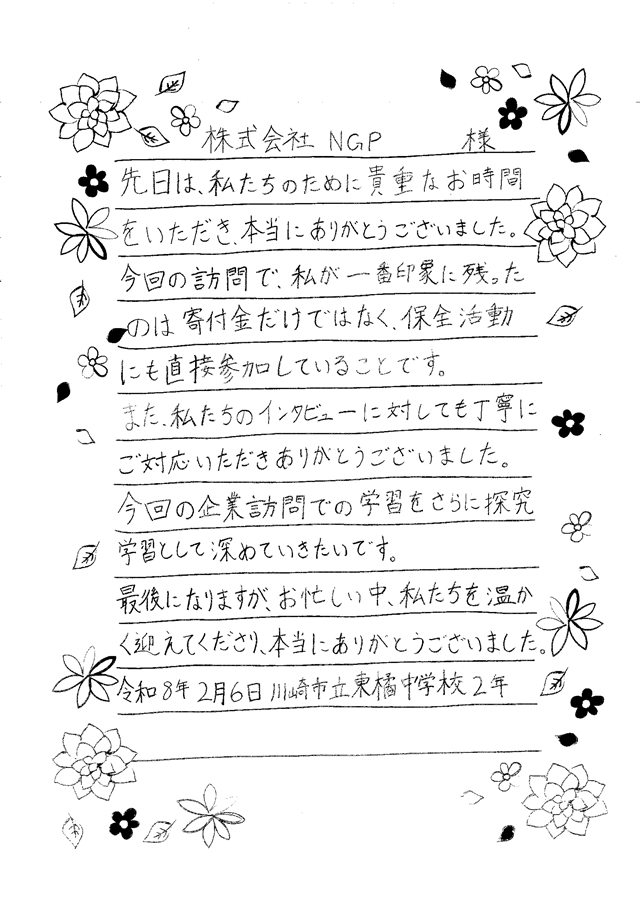 株式会社 NGP 様
先日は、私たちのために貴重なお時間
をいただき、本当にありがとうございました。
今回の訪問で、私が一番印象に残った
のは寄付金だけではなく、保全活動
にも直接参加していることです。
また、私たちのインタビューに対しても丁寧に
ご対応いただきありがとうございました。
今回の企業訪問での学習をさらに探究
学習として深めていきたいです。
最後になりますが、お忙しい中、私たちを温か
く迎えてくださり、本当にありがとうございました。
令和8年2月6日 川崎市立東橘中学校2年